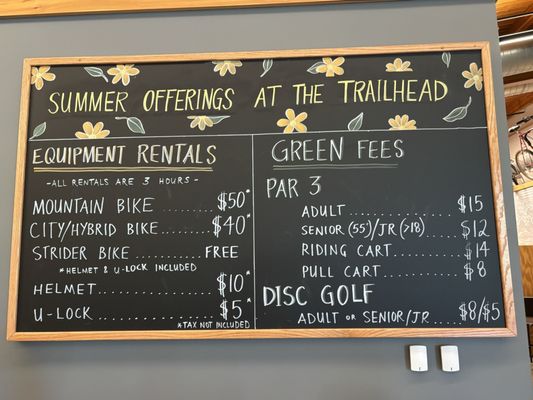 SUMMER OFFERINGS AT THE TRAILHEAD
EQUIPMENT RENTALS
-ALL RENTALS ARE 3 HOURS-
MOUNTAIN BIKE ........ $50*
CITY/HYBRID BIKE ........ $40*
STRIDER BIKE ............ FREE
*HELMET & U-LOCK INCLUDED
HELMET ................ $10*
U-LOCK ................ $5*
*TAX NOT INCLUDED
GREEN FEES
PAR 3
ADULT .................. $15
SENIOR (55⁺)/JR (>18) ...... $12
RIDING CART ............ $14
PULL CART .............. $8
DISC GOLF
ADULT OR SENIOR/JR. ..... $8/$5